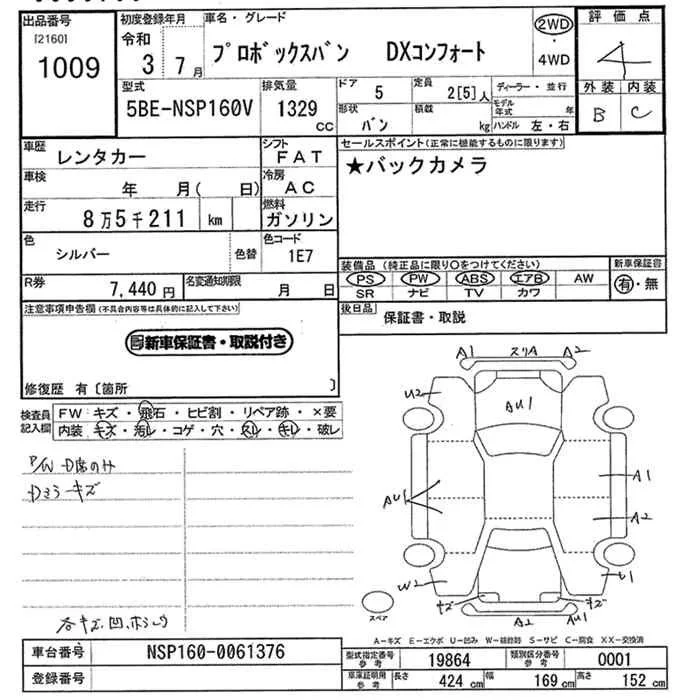 出品番号
[2160]
1009
初度登録年月
令和
3 7月
車名・グレード
プロボックスバン DXコンフォート
2WD
・
4WD
評価点
4
外装 内装
B C
型式
5BE-NSP160V
排気量
1329
cc
ドア
5
定員
2[5]人
形状
バン
積載
kg
ディーラー・並行
モデル年式 年
ハンドル 左・右
車歴
レンタカー
シフト
FAT
車検
年 月( 日)
冷房
AC
走行
8万5千211 km
燃料
ガソリン
色
シルバー
色替
色コード
1E7
R券
7,440円
名変通知期限
月 日
セールスポイント(正常に機能するものに限ります)
★バックカメラ
装備品 (純正品に限り○をつけてください)
PS PW ABS エアB AW
SR ナビ TV カワ
新車保証書
有・無
後日品
保証書・取説
注意事項申告欄(不具合内容等は具体的に記入して下さい)
新車保証書・取説付き
修復歴 有〔箇所 〕
検査員
記入欄
FW キズ・飛石・ヒビ割・リペア跡・×要
内装 キズ・汚レ・コゲ・穴・スレ・キレ・破レ
P/W D席のみ
Dミラーキズ
各キズ、凹、ホシ
A1 スリA A2
U2
AU1
AU1
A1
A2
W2
U1
キズ
キズ
A2 AU1
スペア
A-キズ E-エクボ U-凹み W-補修跡 S-サビ C-腐食 XX-交換済
車台番号
NSP160-0061376
登録番号
型式指定番号
参考
19864
類別区分番号
参考
0001
車庫証明用
参考
長さ
424 cm
幅
169 cm
高さ
152 cm